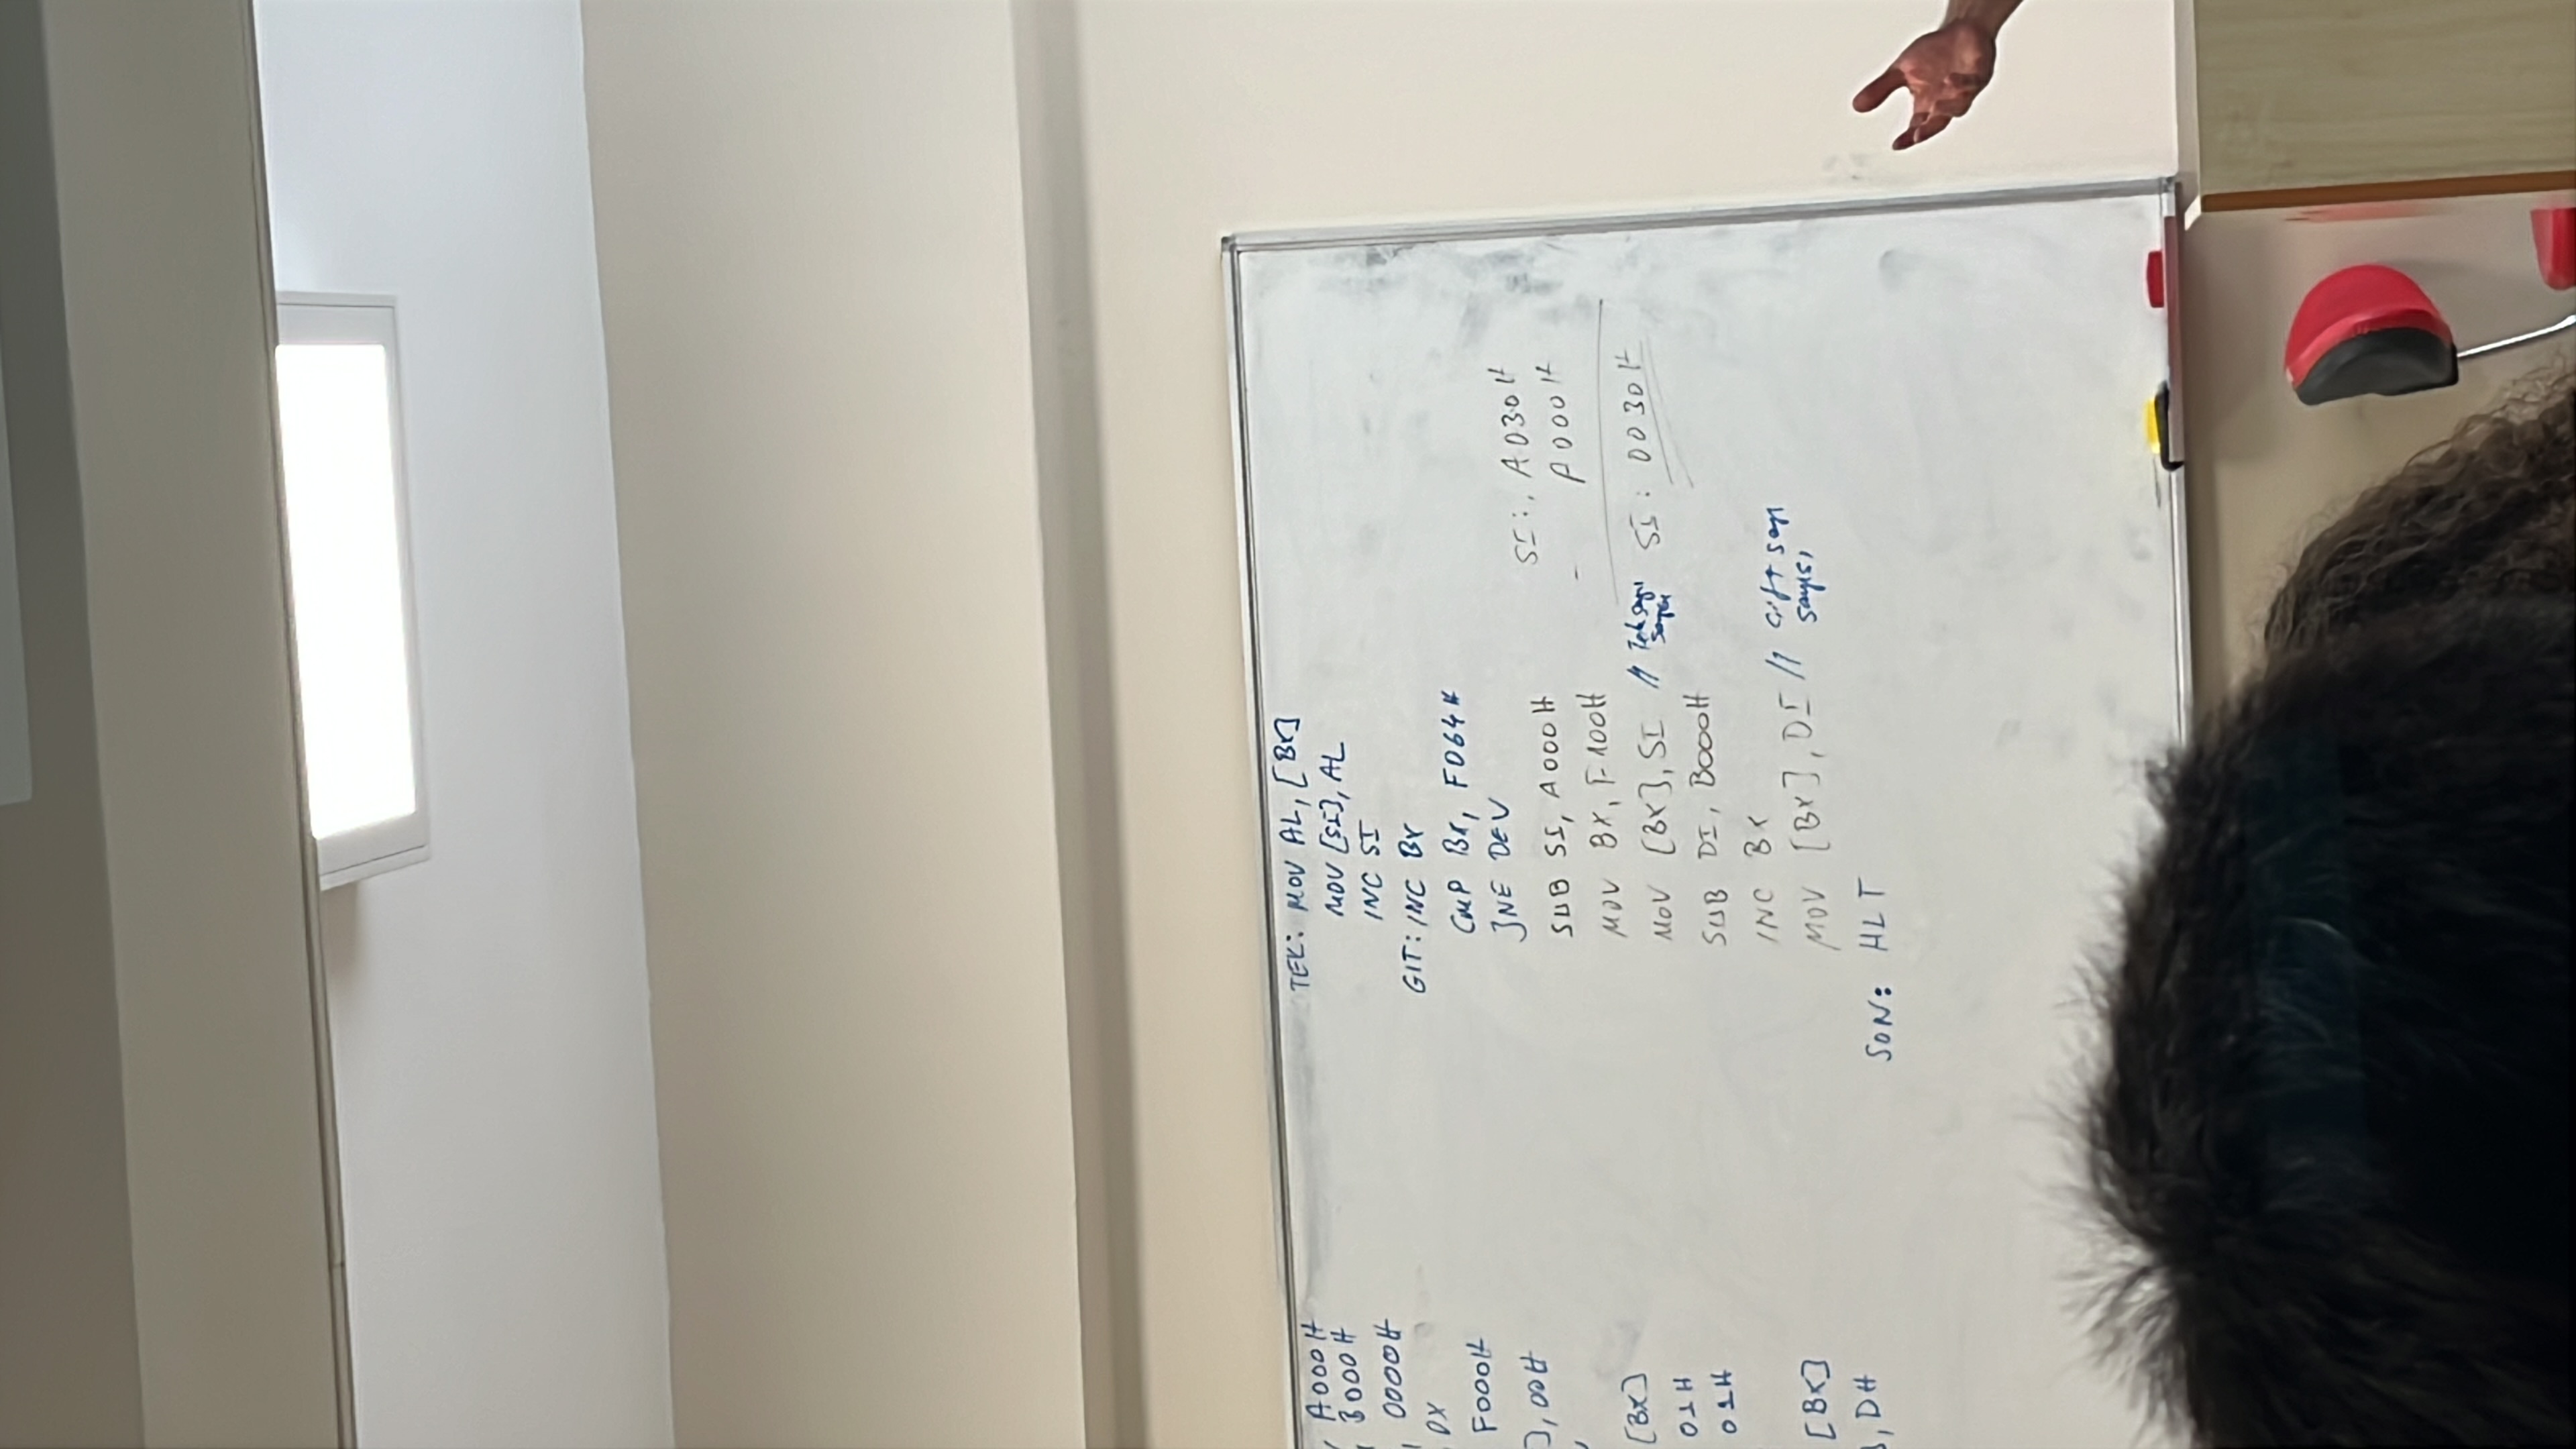 A000H
B000H
, 0000H
, DX
F000H
], 00H
[BX]
01H
01H
[BX]
, DH
TEK: MOV AL, [BX]
MOV [SI], AL
INC SI
GIT: INC BX
CMP BX, F064H
JNE DEV
SUB SI, A000H
MOV BX, F100H
MOV [BX], SI // Tek sayı sayısı
SUB DI, B000H
INC BX
MOV [BX], DI // Çift sayı
sayısı
SON: HLT
SI: A030H
- A000H
SI: 0030H